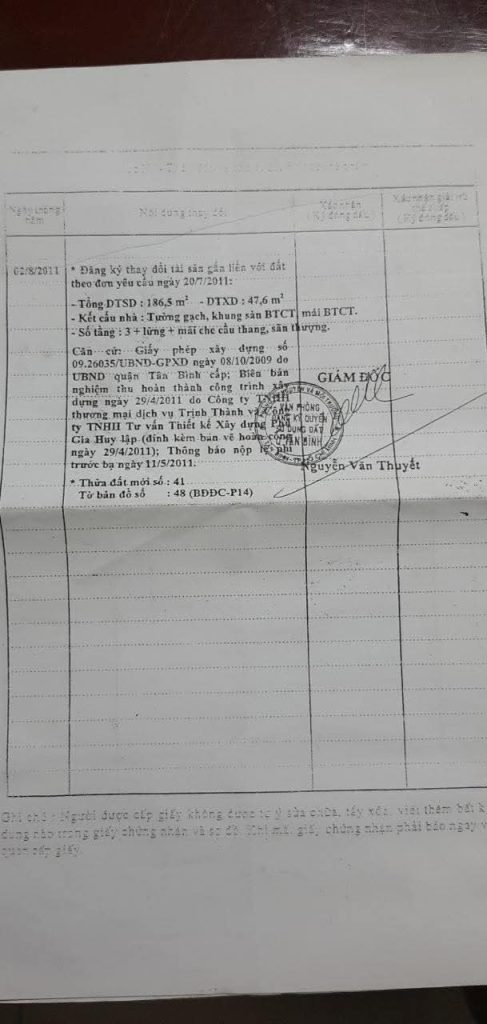 Ngày tháng năm
Nội dung thay đổi
Xác nhận
( Ký đóng dấu )
Xác nhận
( Ký đóng dấu )
02/8/2011
* Đăng ký thay đổi tài sản gắn liền với đất
theo đơn yêu cầu ngày 20/7/2011:
- Tổng DTSD : 186,5 m² - DTXD : 47,6 m²
- Kết cấu nhà : Tường gạch, khung sàn BTCT, mái BTCT.
- Số tầng : 3 + lửng + mái che cầu thang, sân thượng.
Căn cứ: Giấy phép xây dựng số
09.26035/UBND-GPXD ngày 08/10/2009 do
UBND quận Tân Bình cấp; Biên bản
nghiệm thu hoàn thành công trình xây
dựng ngày 29/4/2011 do Công ty TNHH
thương mại dịch vụ Trịnh Thành và Công
ty TNHH Tư vấn Thiết kế Xây dựng Phú
Gia Huy lập (đính kèm bản vẽ hoàn công
ngày 29/4/2011); Thông báo nộp lệ phí
trước bạ ngày 11/5/2011.
* Thửa đất mới số : 41
Tờ bản đồ số : 48 (BĐĐC-P14)
GIÁM ĐỐC
VĂN PHÒNG
ĐĂNG KÝ QUYỀN
SỬ DỤNG ĐẤT
Q.TÂN BÌNH
Nguyễn Văn Thuyết
Ghi chú : Người được cấp giấy không được tự ý sửa chữa, tẩy xóa, viết thêm bất k
dung nào trong giấy chứng nhận và sơ đồ. Khi mất giấy chứng nhận phải báo ngay v
quan cấp giấy.